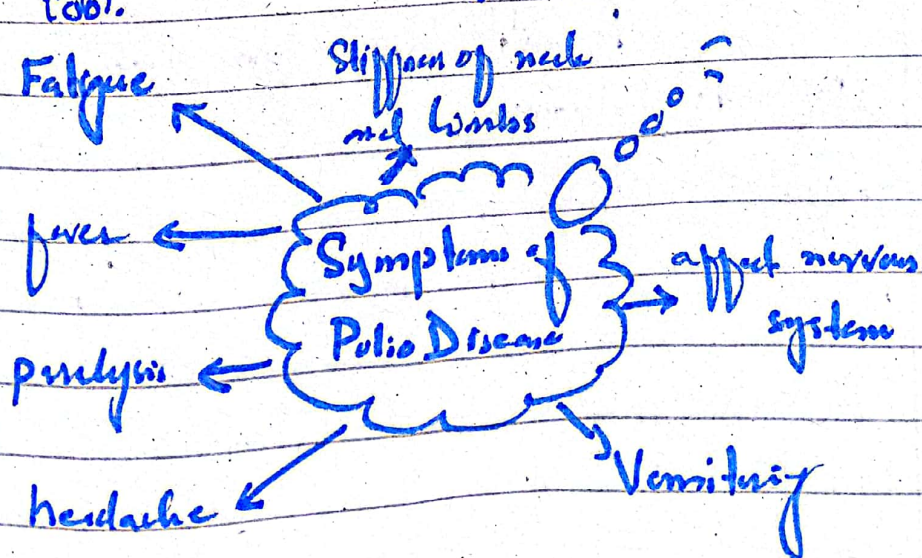 tool.
Fatigue
Stiffness of neck
and Limbs
fever
Symptoms of
Polio Disease
affect nervous
system
paralysis
headache
Vomiting